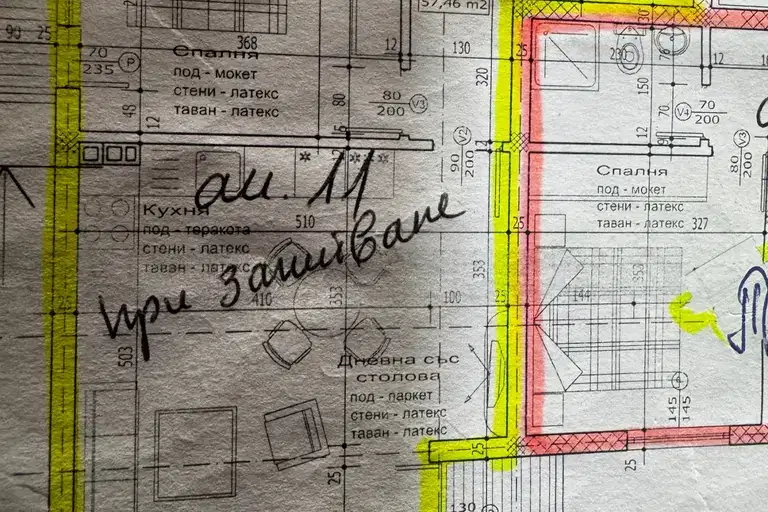 57,46 m2
90
25
368
12
130
25
230
12
Спалня
под - мокет
стени - латекс
таван - латекс
70
235
Р
48
12
80
80
200
V3
320
130
150
70
V4
70
200
12
V2
90
200
V3
80
200
ап. 11
при зашиване
Кухня
под - теракота
стени - латекс
таван - латекс
510
25
Спалня
под - мокет
стени - латекс
таван - латекс
327
353
353
353
25
410
100
25
144
503
Дневна със
столова
под - паркет
стени - латекс
таван - латекс
145
145
25
25
25
130